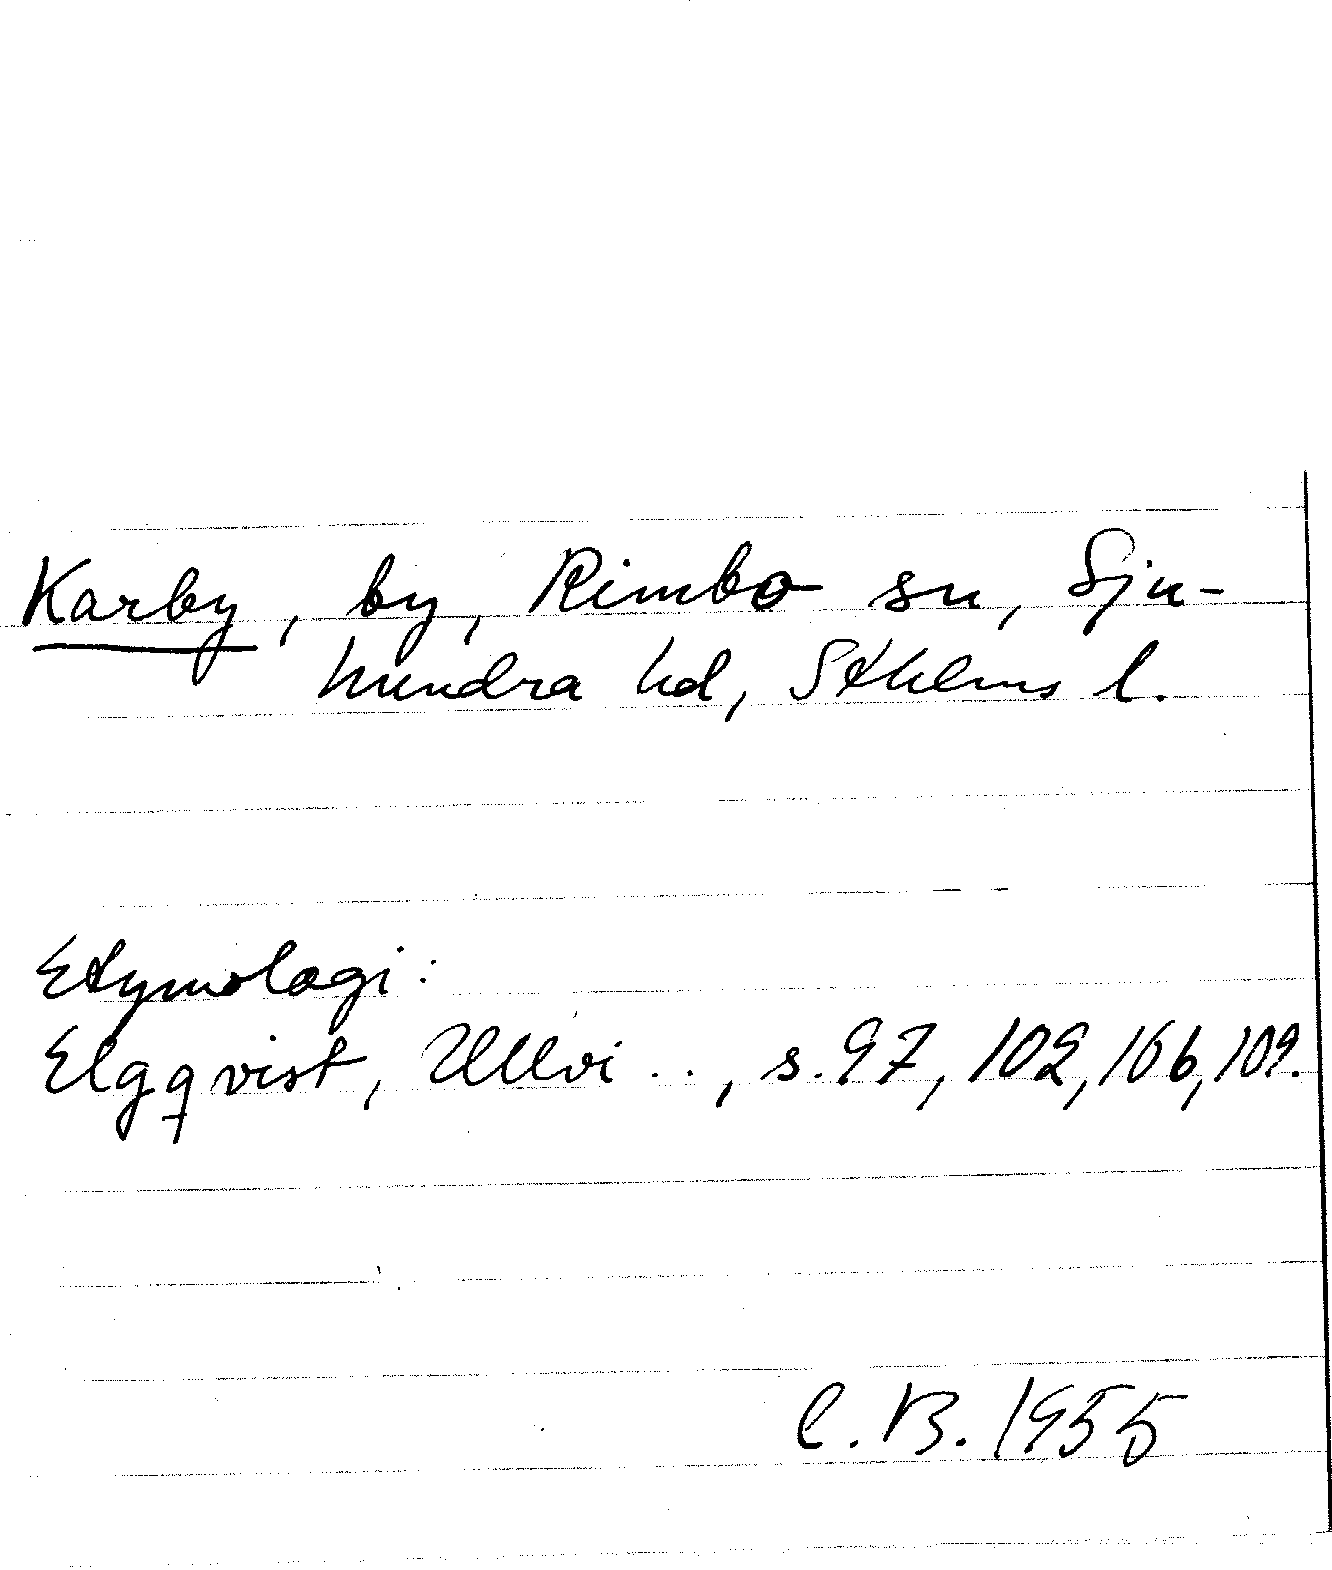 Karby, by, Rimbo sn, Sju-
hundra hd, Sthlms l.
Etymologi:
Elgqvist, Ullvi . . , s. 97, 102, 106, 109.
C. B. 1955